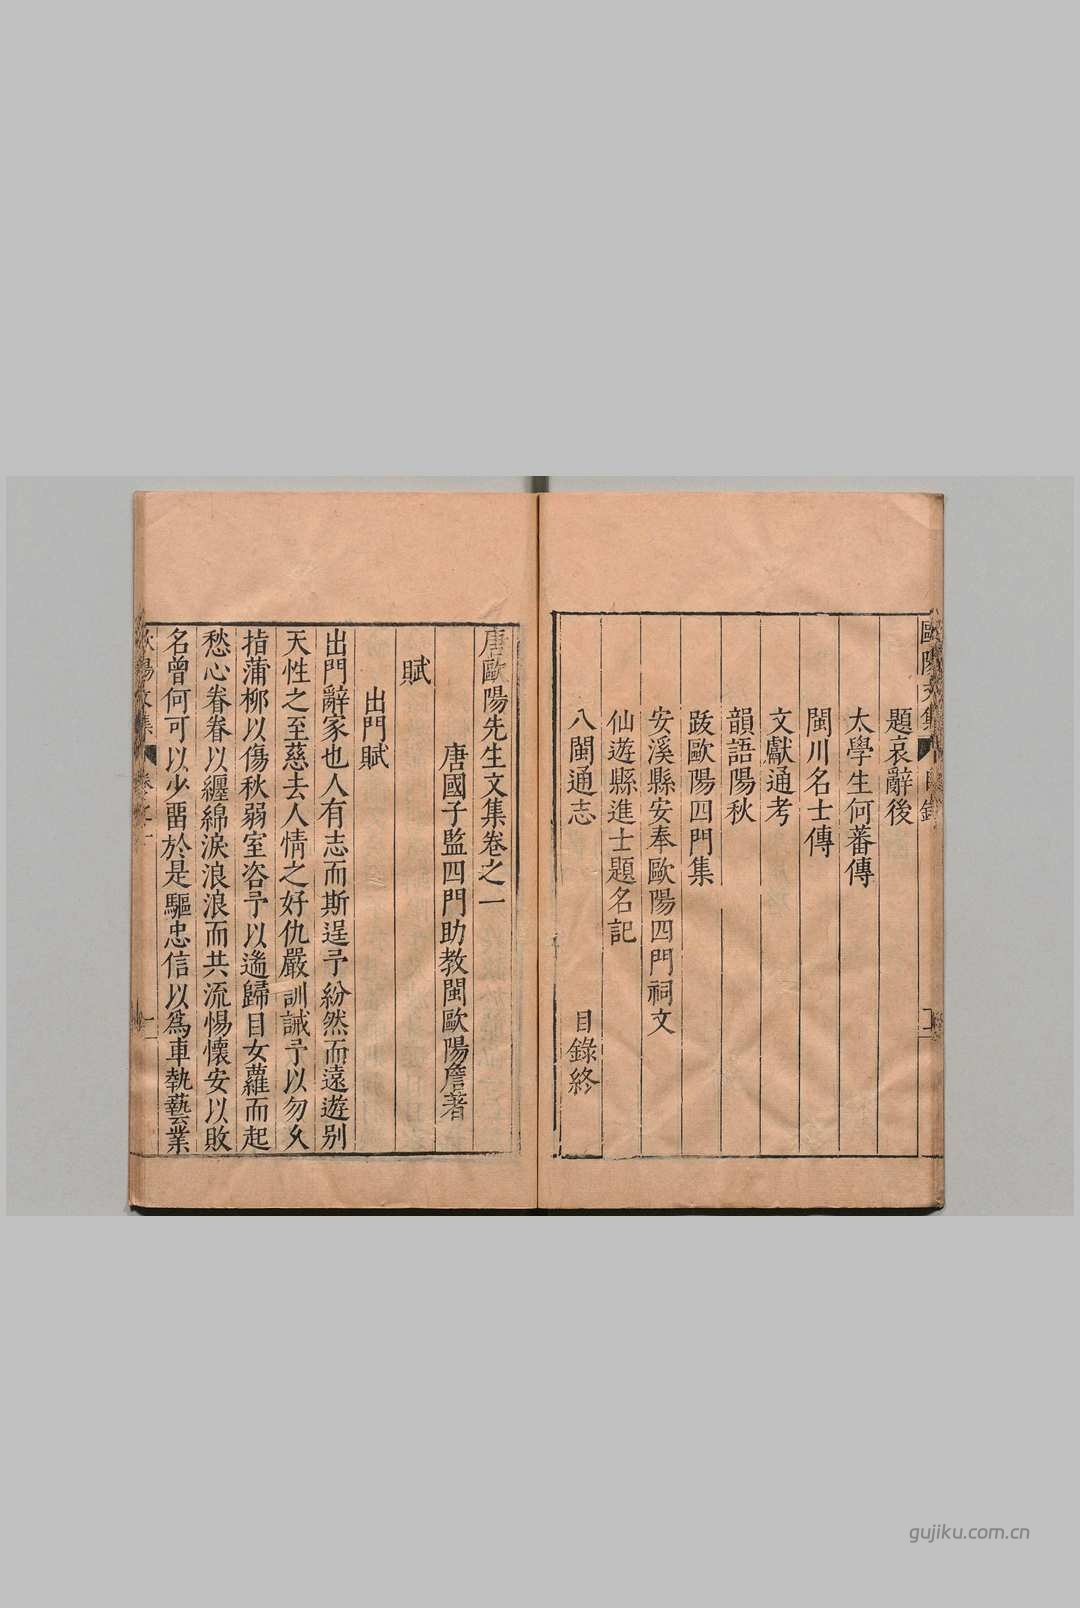 歐陽文集 目錄
題哀辭後
太學生何蕃傳
閩川名士傳
文獻通考
韻語陽秋
跋歐陽四門集
安溪縣安奉歐陽四門祠文
仙遊縣進士題名記
八閩通志 目錄終
唐歐陽先生文集卷之一
唐國子監四門助教閩歐陽詹著
賦
出門賦
出門辭家也人有志而斯逞予紛然而遠遊別
天性之至慈去人情之好仇嚴訓誡予以勿久
指蒲柳以傷秋弱室咨予以遄歸目女蘿而起
愁心眷眷以纏綿淚浪浪而共流惕懷安以敗
名曾何可以少畱於是驅忠信以爲車執藝業
歐陽文集 卷之一
gujiku.com.cn